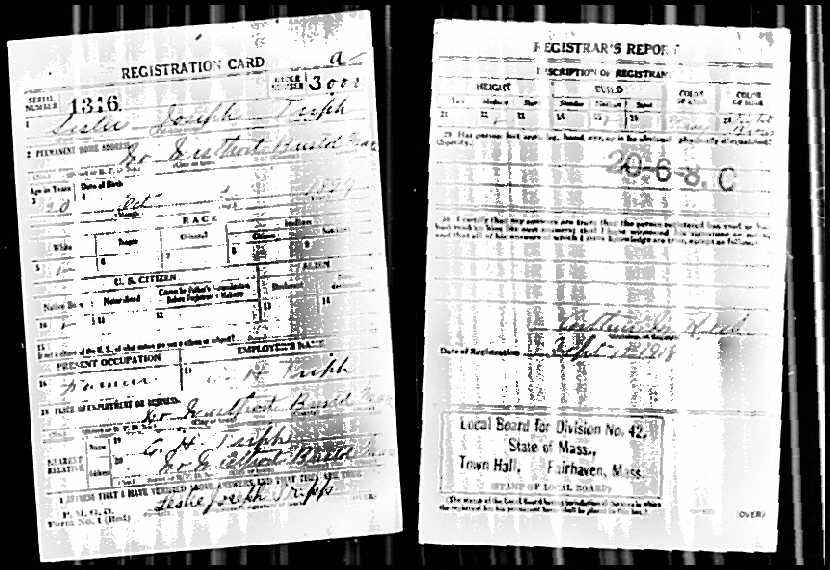 REGISTRATION CARD
SERIAL NUMBER 1316.
ORDER NUMBER 3000
1 Leslie Joseph Tripp
2 PERMANENT HOME ADDRESS:
No Westport Bristol Mass
Age in Years
Date of Birth
3 20
Oct
RACE
White
Negro
Oriental
Indian
Citizen
5
6
7
8
9
U. S. CITIZEN
ALIEN
Native Born
Naturalized
Citizen by Father's Naturalization Before Registrant's Majority
Declarant
10
11
12
13
14
15
If not a citizen of the U. S., of what nation are you a citizen or subject?
PRESENT OCCUPATION
EMPLOYER'S NAME
16 Farmer
17 C. H. Tripp
18 PLACE OF EMPLOYMENT OR BUSINESS:
No Westport Bristol Mass
NEAREST RELATIVE
Name 19 C. H. Tripp
Address 20 No Westport Bristol Mass
I AFFIRM THAT I HAVE VERIFIED ABOVE ANSWERS AND THAT THEY ARE TRUE
P. M. G. O.
Form No. 1 (Red)
Leslie Joseph Tripp
(OVER)
REGISTRAR'S REPORT
DESCRIPTION OF REGISTRANT
HEIGHT
BUILD
COLOR OF EYES
COLOR OF HAIR
Tall
Medium
Short
Slender
Medium
Stout
21
22
23
24
25
26
28
29 Has person lost arm, leg, hand, eye, or is he obviously physically disqualified?
(Specify.)
20-6-8. C
30 I certify that my answers are true; that the person registered has read or has had read to him his own answers; that I have witnessed his signature or mark, and that all of his answers of which I have knowledge are true, except as follows:
Date of Registration Sept 12 1918
Local Board for Division No. 42,
State of Mass.,
Town Hall, Fairhaven, Mass.
(STAMP OF LOCAL BOARD)
(The stamp of the Local Board having jurisdiction of the area in which the registrant has his permanent home shall be placed in this box.)
(OVER)